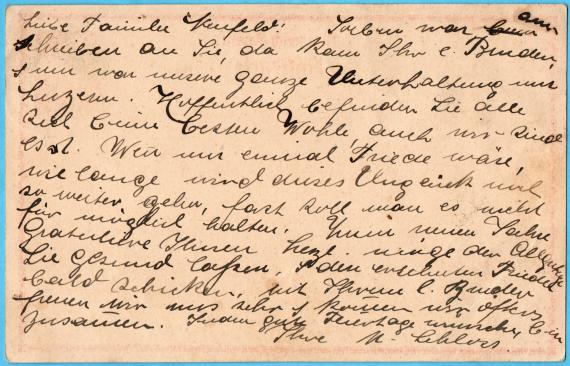 Liebe Familie Neufeld! Soeben war am
schreiben an Sie, da kam Ihr l. Bruder,
nun war unsere ganze Unterhaltung nur
Luzern. Hoffentlich befinden Sie alle
beim besten Wohle, auch wir sind
es st. Wen nur einmal Friede wäre,
wie lange wird dieses Ungemut noch
so weiter gehn, fast soll man es nicht
für möglich halten. Zum neuen Jahre
Gratuliere Ihnen herzl. möge der Allgütige
Sie gesund lassen, den ersehnten Frieden
bald schicken, mit Ihrem l. Bruder
freuen wir uns sehr, kommen wir öfters
zusammen. Indem gute Feiertage wünsche bin
Ihre M.